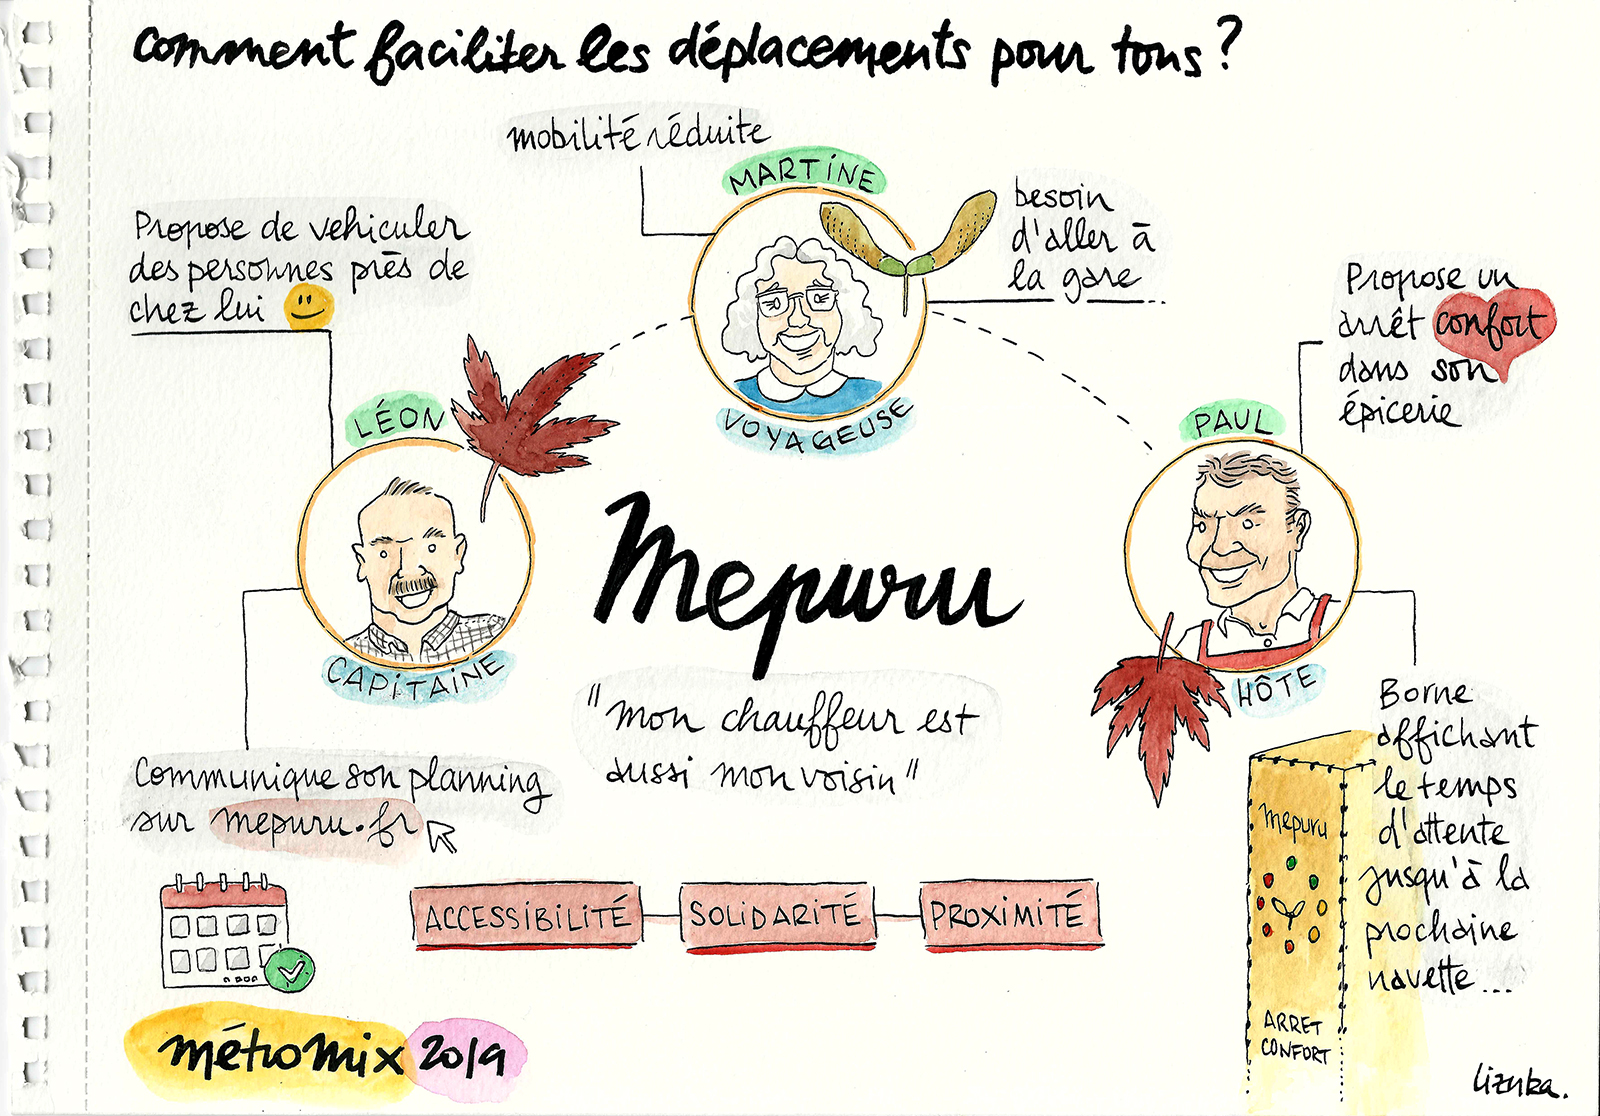 comment faciliter les déplacements pour tous ?
mobilité réduite
MARTINE
VOYAGEUSE
besoin
d'aller à
la gare
Propose de vehiculer
des personnes près de
chez lui
LÉON
CAPITAINE
Communique son planning
sur mepuru.fr
Propose un
arrêt confort
dans son
épicerie
PAUL
HÔTE
Mepuru
"mon chauffeur est
aussi mon voisin"
Borne
affichant
le temps
d'attente
jusqu'à la
prochaine
navette...
mepuru
ARRET
CONFORT
ACCESSIBILITÉ
SOLIDARITÉ
PROXIMITÉ
métromix 2019
lizuka.